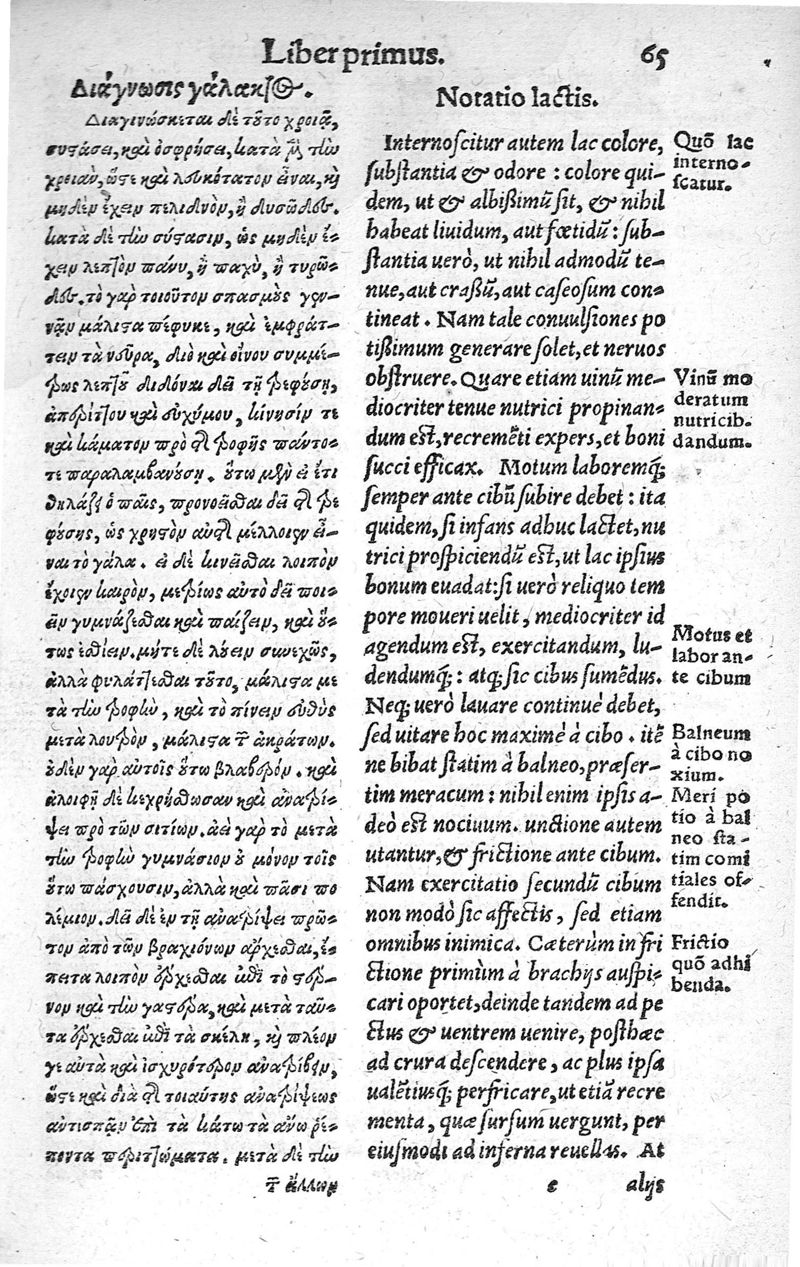 Liber primus. 65
Διάγνωσις γάλακτος.
Διαγινώσκεται δὲ τοῦτο χροιᾷ,
συστάσει, καὶ ὀσφρήσει, κατὰ μὲν τὴν
χροιὰν, ὥστε καὶ λευκότατον εἶναι, καὶ
μηδὲν ἔχειν πελιδνὸν, ἢ δυσῶδες.
κατὰ δὲ τὴν σύστασιν, ὡς μηδὲν ἔ-
χειν λεπτὸν πάνυ, ἢ παχὺ, ἢ τυρῶ-
δες. τὸ γὰρ τοιοῦτον σπασμοὺς γεν-
νᾷν μάλιστα πέφυκε, καὶ ἐμφράτ-
τειν τὰ νεῦρα, διὸ καὶ οἴνου συμμέ-
τρως λεπτοῦ διδόναι δεῖ τῇ τρεφούσῃ,
ἀπερίττου καὶ εὐχύμου, κίνησίν τε
καὶ κάματον πρὸ τῆς τροφῆς πάντο-
τε παραλαμβανούσῃ. οὕτω μὲν εἰ ἔτι
θηλάζει ὁ παῖς, προνοεῖσθαι δεῖ τῆς τρε
φούσης, ὡς χρηστὸν αὐτῆς μέλλοιεν εἶ-
ναι τὸ γάλα. εἰ δὲ κινεῖσθαι λοιπὸν
ἔχοιεν καιρὸν, μετρίως αὐτὸ δεῖ ποι-
εῖν γυμνάζεσθαι καὶ παίζειν, καὶ οὕ-
τως ἐσθίειν. μήτε δὲ λούειν συνεχῶς,
ἀλλὰ φυλάττεσθαι τοῦτο, μάλιστα με
τὰ τὴν τροφὴν, καὶ τὸ πίνειν εὐθὺς
μετὰ λουτρὸν, μάλιστα τῶν ἀκράτων.
οὐδὲν γὰρ αὐτοῖς οὕτω βλαβερόν. καὶ
ἀλοιφῇ δὲ κεχρήσθωσαν καὶ ἀνατρί-
ψει πρὸ τῶν σιτίων. ἀεὶ γὰρ τὸ μετὰ
τὴν τροφὴν γυμνάσιον οὐ μόνον τοῖς
οὕτω πάσχουσιν, ἀλλὰ καὶ πᾶσι πο
λέμιον. δεῖ δὲ ἐν τῇ ἀνατρίψει πρῶ-
τον ἀπὸ τῶν βραχιόνων ἄρχεσθαι, ἔ-
πειτα λοιπὸν ἔρχεσθαι ἐπὶ τὸ στέρ-
νον καὶ τὴν γαστέρα, καὶ μετὰ ταῦ-
τα ἔρχεσθαι ἐπὶ τὰ σκέλη, καὶ πλέον
γε αὐτὰ καὶ ἰσχυρότερον ἀνατρίβειν,
ὥστε καὶ διὰ τῆς τοιαύτης ἀνατρίψεως
ἀντισπᾷν ἐπὶ τὰ κάτω τὰ ἄνω ῥέ-
ποντα περιττώματα. μετὰ δὲ τὴν
τῶν ἄλλων
Notatio lactis.
Internoscitur autem lac colore,
substantia & odore : colore qui-
dem, ut & albissimū sit, & nihil
habeat liuidum, aut fœtidū : sub-
stantia uerò, ut nihil admodū te-
nue, aut crassū, aut caseosum con-
tineat . Nam tale conuulsiones po
tissimum generare solet, et neruos
obstruere. Quare etiam uinū me-
diocriter tenue nutrici propinan-
dum est, recremēti expers, et boni
succi efficax. Motum laboremq́;
semper ante cibū subire debet : ita
quidem, si infans adhuc lactet, nu
trici prospiciendū est, ut lac ipsius
bonum euadat: si uerò reliquo tem
pore moueri uelit, mediocriter id
agendum est, exercitandum, lu-
dendumq́;: atq; sic cibus sumēdus.
Neq; uerò lauare continuè debet,
sed uitare hoc maximè à cibo . itē
ne bibat statim à balneo, præser-
tim meracum : nihil enim ipsis a-
deò est nociuum. unctione autem
utantur, & frictione ante cibum.
Nam exercitatio secundū cibum
non modò sic affectis, sed etiam
omnibus inimica. Cæterùm in fri
ctione primùm à brachijs auspi-
cari oportet, deinde tandem ad pe
ctus & uentrem uenire, posthæc
ad crura descendere, ac plus ipsa
ualētiusq́; perfricare, ut etiā recre
menta, quæ sursum uergunt, per
eiusmodi ad inferna reuellas. At
e alijs
Quō lac
interno-
scatur.
Vinū mo
deratum
nutricib.
dandum.
Motus et
labor an-
te cibum
Balneum
à cibo no
xium.
Meri po
tio à bal
neo sta-
tim comi
tiales of-
fendit.
Frictio
quō adhi
benda.